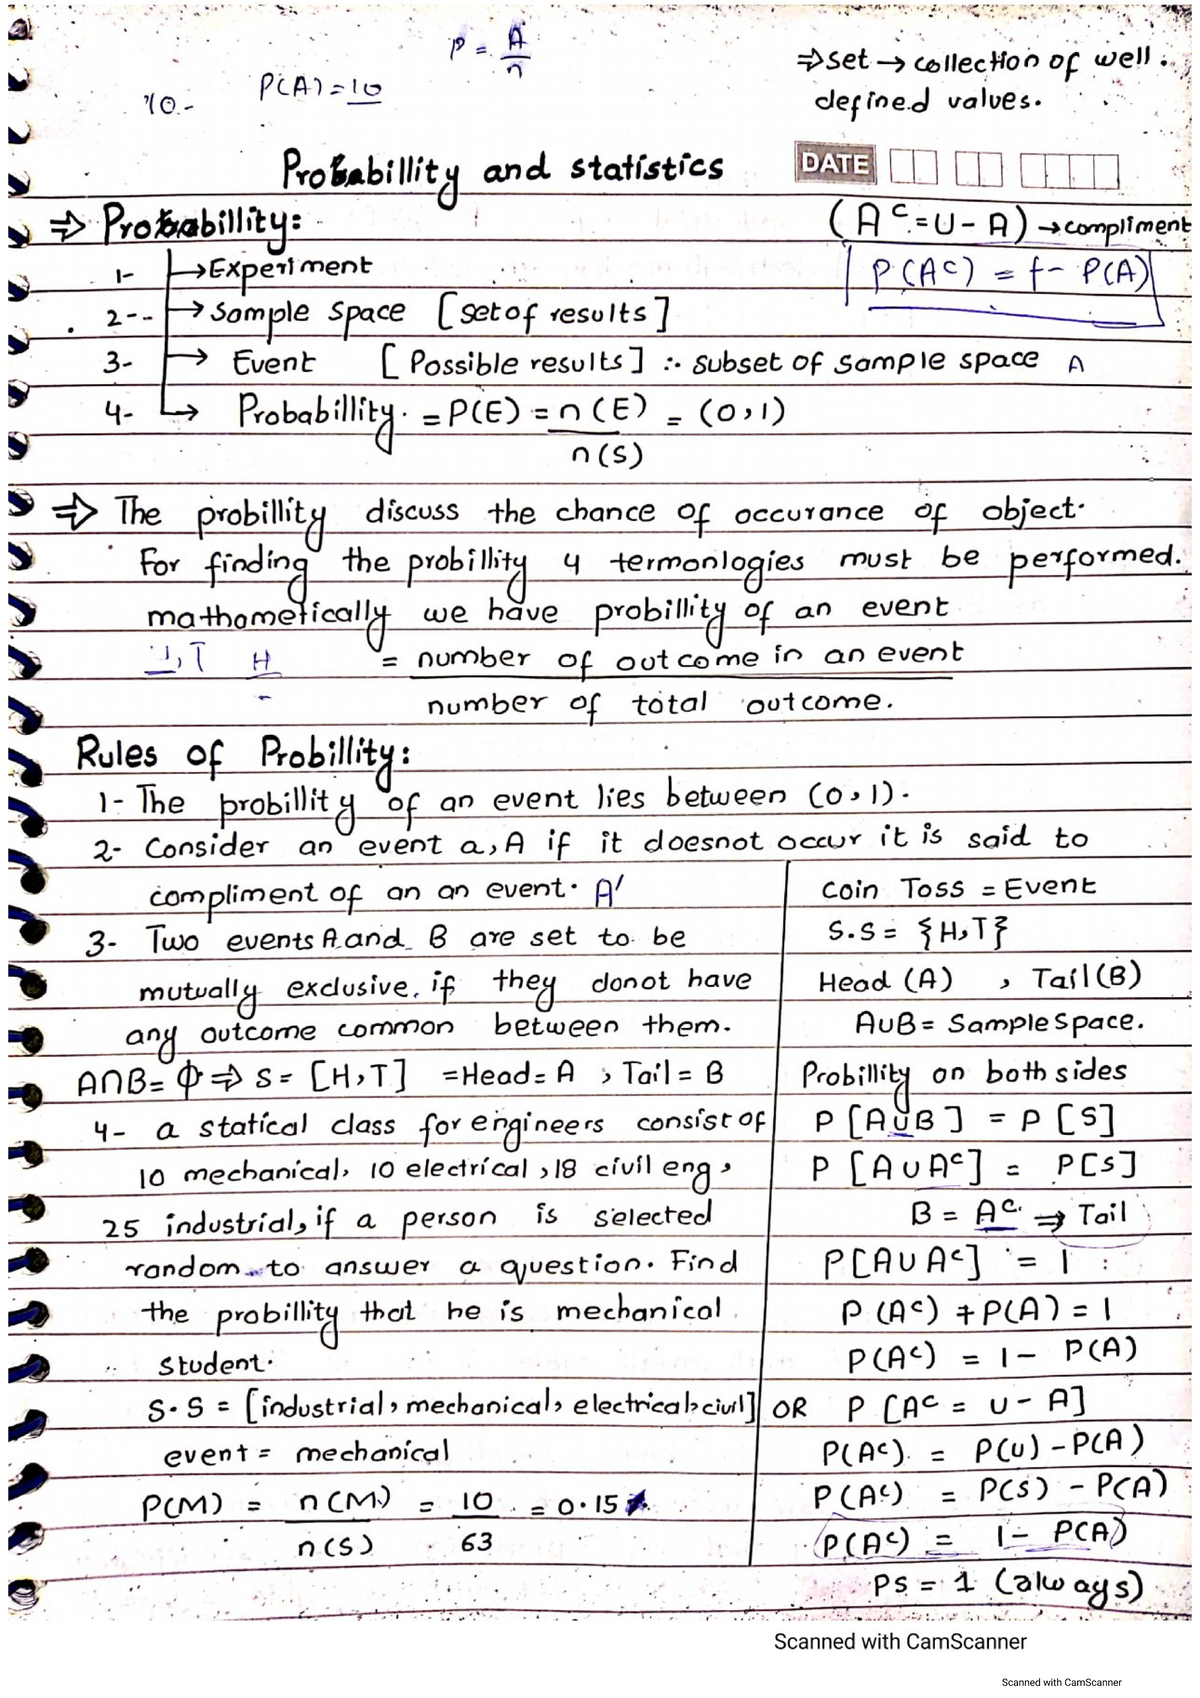 P = A/n
⇒ set → collection of well.
P(A) = 10
10-
defined values.
Probabillity and statistics
DATE
⇒ Probabillity:
(Aᶜ = U - A) → compliment
1- → Experiment
P(Aᶜ) = 1 - P(A)
2-- → Sample space [set of results]
3- → Event [Possible results] ∴ subset of sample space A
4- → Probabillity. = P(E) = n(E)/n(S) = (0,1)
⇒ The probillity discuss the chance of occurance of object.
For finding the probillity 4 termonlogies must be performed.
mathometically we have probillity of an event
= number of outcome in an event
T H
number of total outcome.
Rules of Probillity:
1- The probillity of an event lies between (0,1).
2- Consider an event a, A if it doesnot occur it is said to
compliment of an an event. A'
3- Two events A and B are set to be
mutually exclusive, if they donot have
any outcome common between them.
A∩B = Φ ⇒ S = [H,T] = Head = A , Tail = B
4- a statical class for engineers consist of
10 mechanical, 10 electrical, 18 civil eng,
25 industrial, if a person is selected
random to answer a question. Find
the probillity that he is mechanical
student.
S.S = [industrial, mechanical, electrical, civil]
event = mechanical
P(M) = n(M)/n(S) = 10/63 = 0.15
coin Toss = Event
S.S = {H,T}
Head (A) , Tail (B)
A∪B = Sample space.
Probillity on both sides
P[A∪B] = P[S]
P[A∪Aᶜ] = P[S]
B = Aᶜ ⇒ Tail
P[A∪Aᶜ] = 1
P(Aᶜ) + P(A) = 1
P(Aᶜ) = 1 - P(A)
OR P[Aᶜ = U - A]
P(Aᶜ) = P(U) - P(A)
P(Aᶜ) = P(S) - P(A)
P(Aᶜ) = 1 - P(A)
Ps = 1 (always)
Scanned with CamScanner
Scanned with CamScanner